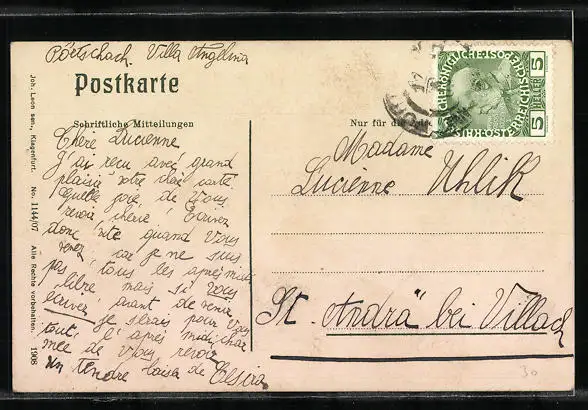 Pörtschach. Villa Angelina
Postkarte
Schriftliche Mitteilungen
Nur für die
Chère Lucienne
J'ai reçu avec grand
plaisir votre carte
quelle joie de vous
revoir, chérie! Écrivez
donc vite quand vous
venez, car je ne suis
pas tous les après midi
libre, mais si vous
écrivez avant de venir
je serais pour vous
tout l'après midi char
mée de vous revoir
Un tendre baiser de Elsira
Madame
Lucienne Uhlik
St. Andrä bei Villach
5 HELLER 5
Joh. Leon sen., Klagenfurt. No. 1144/07 Alle Rechte vorbehalten. 1908
30